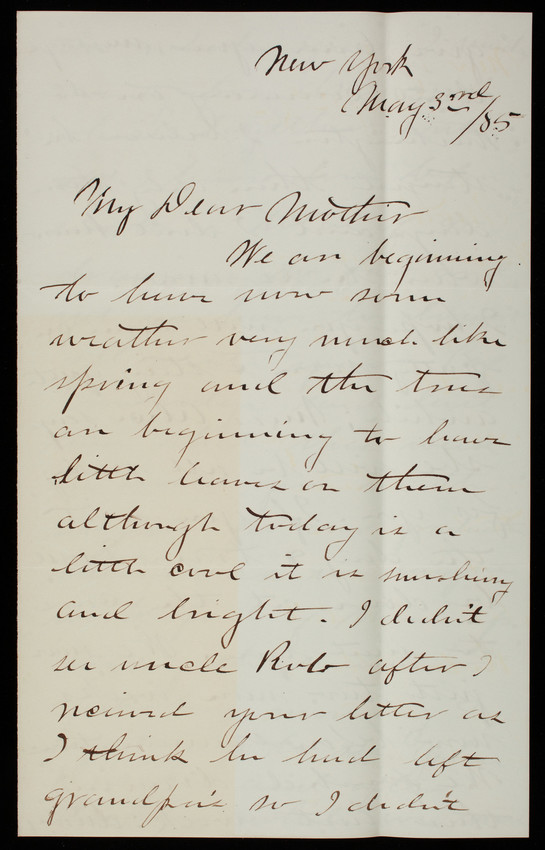 New York
May 3rd/85
My Dear Mother
We are beginning
to have now some
weather very much like
spring and the trees
are beginning to have
little leaves on them
although today is a
little cool it is sunshiny
and bright. I didn't
see uncle Rob after I
received your letter as
I think he had left
grandpa's so I didn't